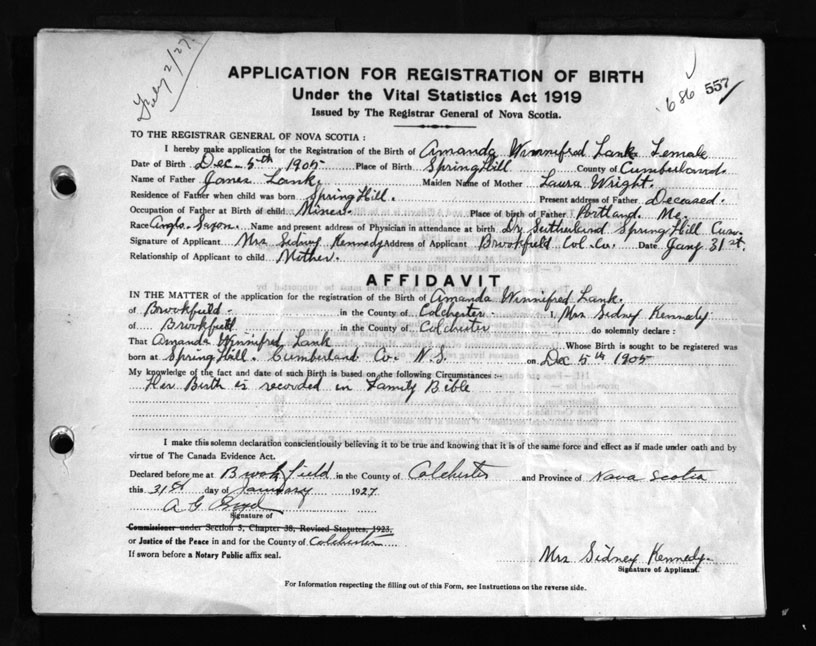 Feby 2/27
APPLICATION FOR REGISTRATION OF BIRTH
Under the Vital Statistics Act 1919
Issued by The Registrar General of Nova Scotia.
686 557
TO THE REGISTRAR GENERAL OF NOVA SCOTIA:
I hereby make application for the Registration of the Birth of Amanda Winnifred Lank. Female
Date of Birth Dec- 5th 1905 Place of Birth Spring Hill County of Cumberland.
Name of Father James Lank. Maiden Name of Mother Laura Wright.
Residence of Father when child was born Spring Hill. Present address of Father Deceased.
Occupation of Father at Birth of child Miner Place of birth of Father Portland. Me.
Race Anglo-Saxon. Name and present address of Physician in attendance at birth Dr Sutherland Spring Hill Cum.
Signature of Applicant Mrs Sidney Kennedy Address of Applicant Brookfield Col. Co. Date Jany 31st.
Relationship of Applicant to child Mother.
AFFIDAVIT
IN THE MATTER of the application for the registration of the Birth of Amanda Winnifred Lank.
of Brookfield. in the County of Colchester. I, Mrs Sidney Kennedy
of Brookfield in the County of Colchester do solemnly declare:
That Amanda Winnifred Lank Whose Birth is sought to be registered was
born at Spring Hill. Cumberland Co. N.S. on Dec 5th 1905
My knowledge of the fact and date of such Birth is based on the following Circumstances:-
Her Birth is recorded in Family Bible
I make this solemn declaration conscientiously believing it to be true and knowing that it is of the same force and effect as if made under oath and by
virtue of The Canada Evidence Act.
Declared before me at Brookfield in the County of Colchester and Province of Nova Scotia
this 31st day of January 1927
A G
Signature of
Commissioner under Section 3, Chapter 38, Revised Statutes, 1923,
or Justice of the Peace in and for the County of Colchester
If sworn before a Notary Public affix seal.
Mrs Sidney Kennedy.
Signature of Applicant.
For Information respecting the filling out of this Form, see Instructions on the reverse side.